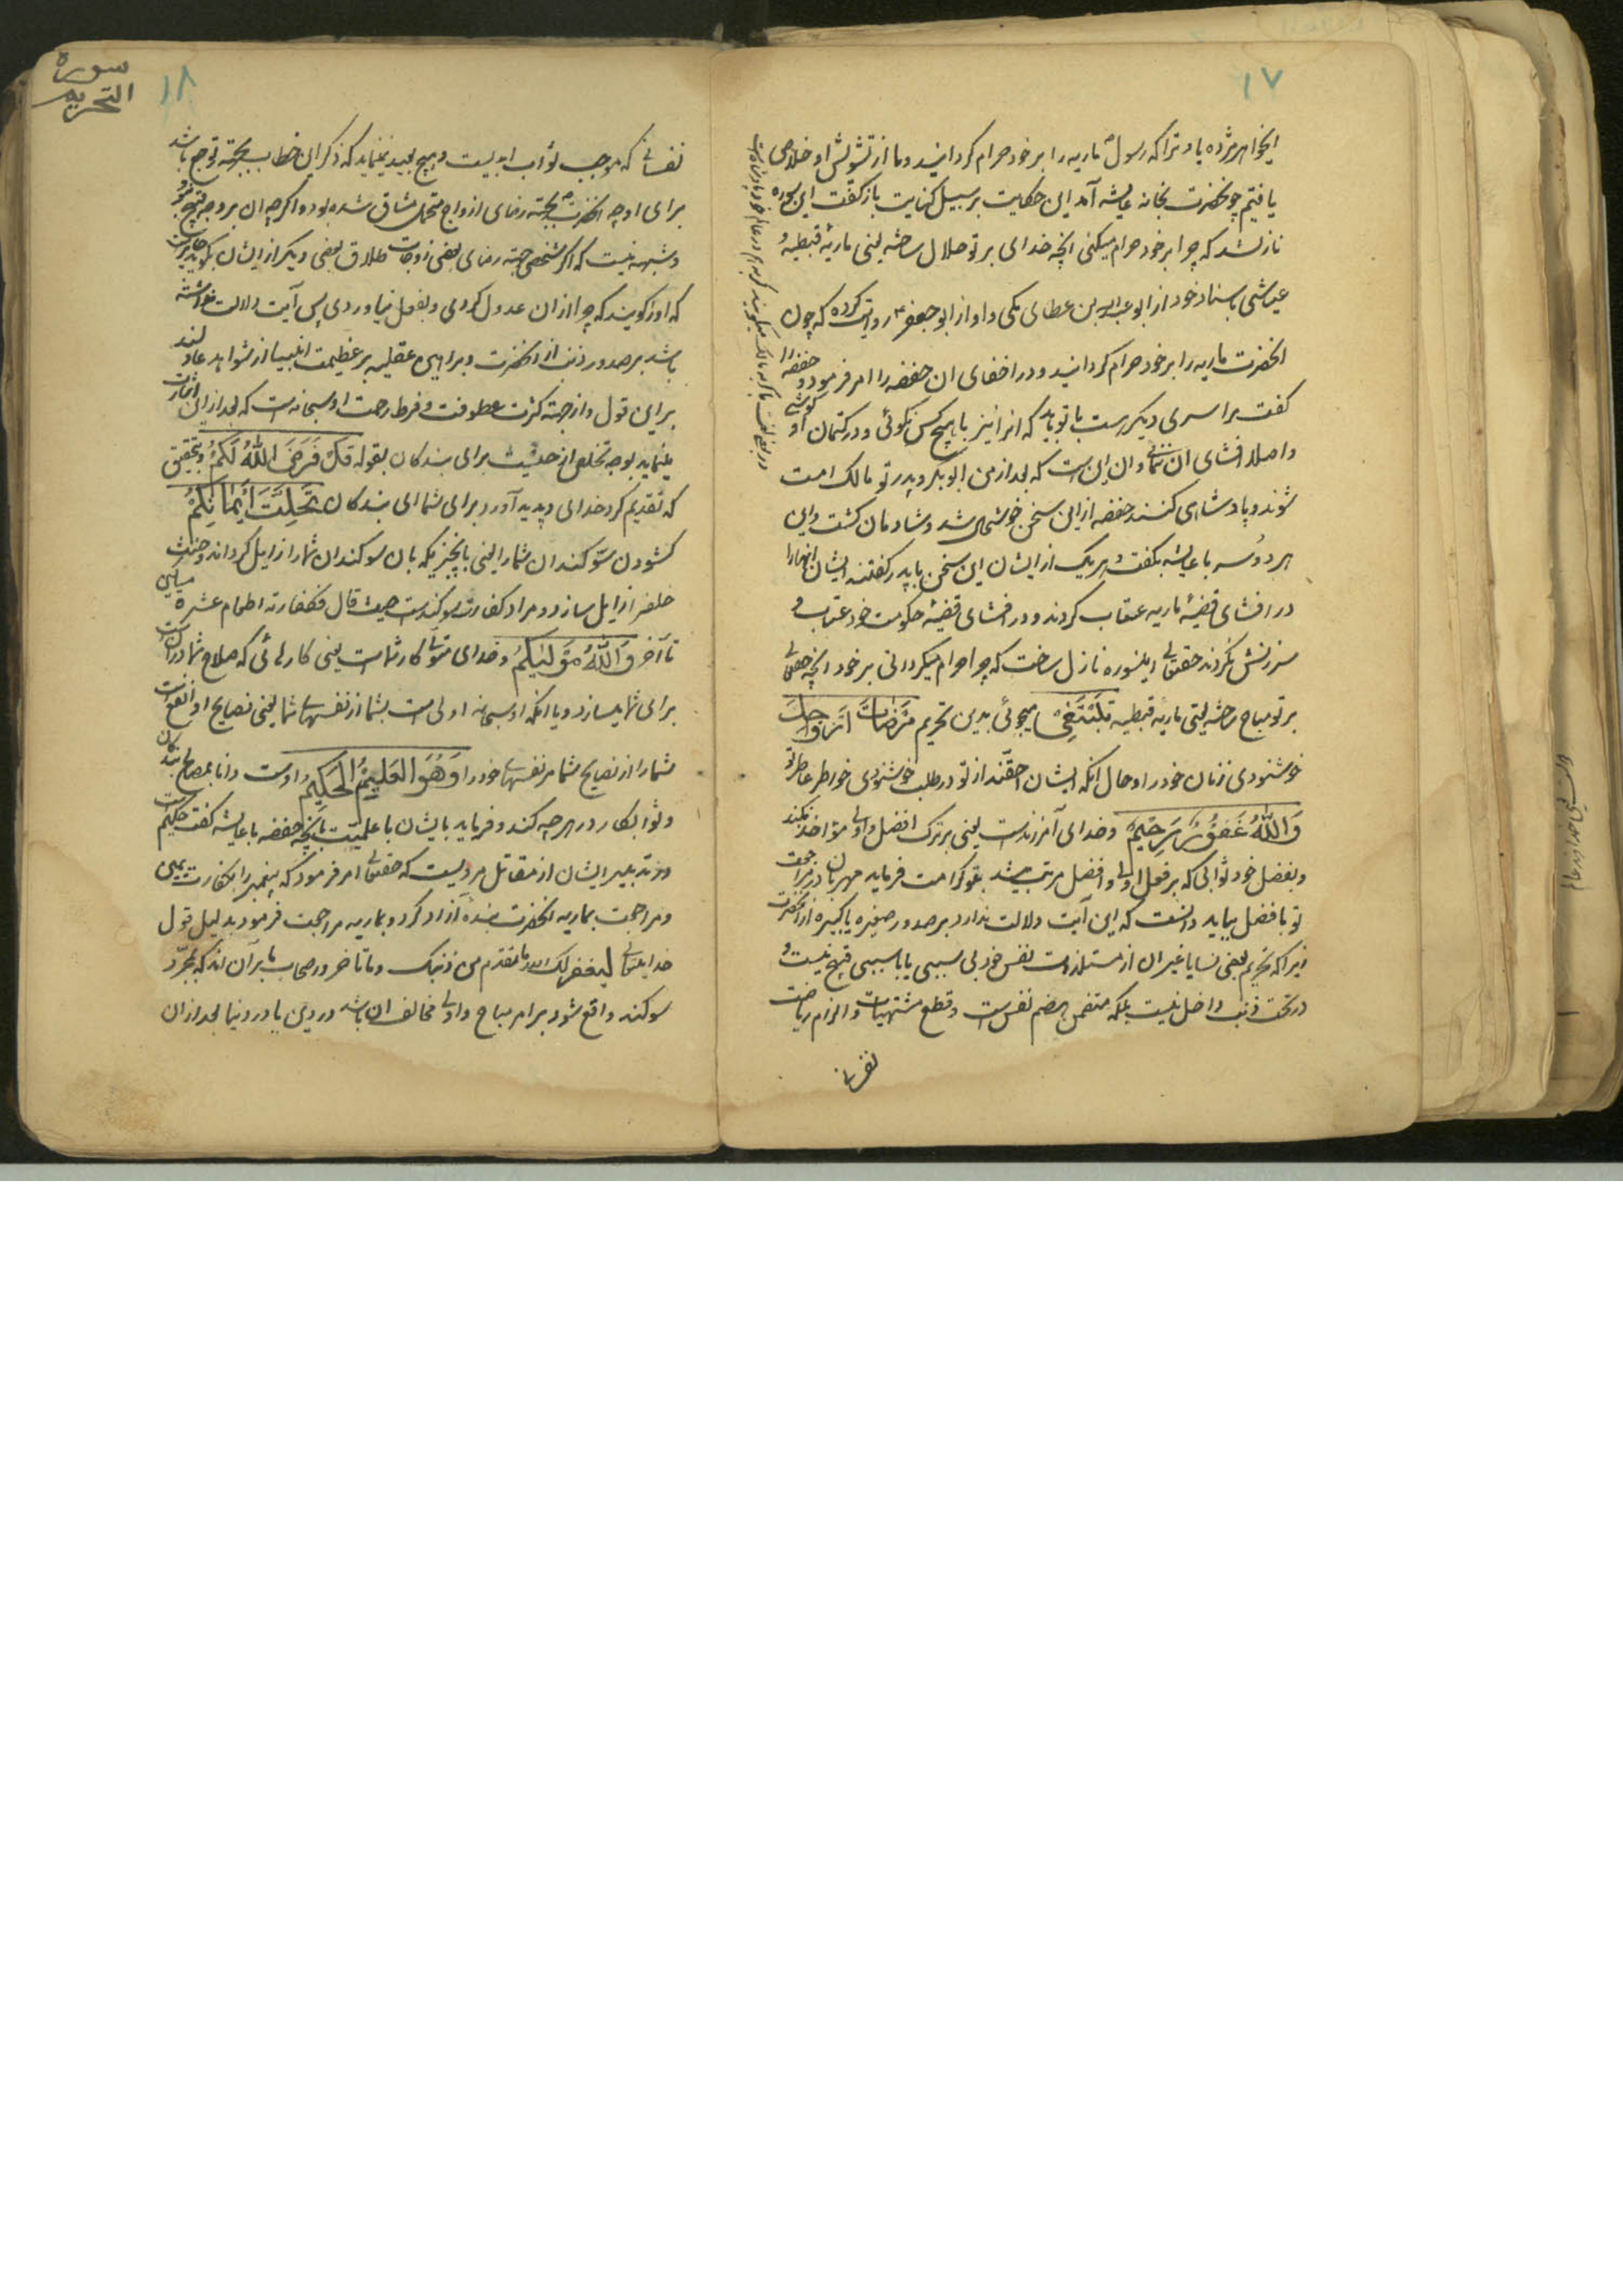 ۱۷
ایخواهر مژده باد ترا که رسول ماریه را بر خود حرام کردانید و ما از تشویش او خلاصی
یافتیم چو نحضرت بخانه عایشه آمد این حکایت بر سبیل کنایت باز کفت این سوره
نازلشد که چرا بر خود حرام میکنی انچه خدای بر تو حلال ساخته یعنی ماریهٔ قبطیه و
عیاشی باسناد خود از ابو عبدالله بن عطای مکی و او از ابو جعفر ع روایت کرده که چون
انحضرت ماریه را بر خود حرام کردانید و در اخفای ان حفصه را امر فرمود و حفصه را
کفت مرا سری دیکرست با تو باید که انرا نیز با هیچ کس نکوئی و در کتمان او کوشی
و اصلا افشای ان ننمائی و ان این است که بعد از من ابو بکر و پدر تو مالک امت
شوند و پادشاهی کنند حفصه از این سخن خوشحال شد و شادمان کشت و این
هر دو سر با عایشه بکفت و هر یک از ایشان این سخن با پدر کفتند ایشان انها را
در افشای قضیهٔ ماریه عتاب کردند و در افشای قضیهٔ حکومت خود عتاب و
سرزنش نکردند حقتعالی اینسوره نازل ساخت که چرا حرام میکردانی بر خود انچه حقتعالی
بر تو مباح ساخته یعنی ماریه قبطیه تَبْتَغِیْ میجوئی بدین تحریم مَرْضَاتَ اَزْوَاجِكَ
خوشنودی زنان خود را و حال انکه ایشان احقند از تو در طلب خوشنودی خواطر عاطر تو
وَاللّٰهُ غَفُوْرٌ رَحِیْمٌ و خدای آمرزندست یعنی بر ترک افضل و اولی مؤاخذ نکند
و بفضل خود ثوابی که بر فعل اولی و افضل مرتب میشد بتو کرامت فرماید مهربان در مراجعت
تو بافضل بباید دانست که این آیت دلالت ندارد بر صدور صغیره یا کبیره از انحضرت
زیرا که تحریم بعضی نسا یا غیر ان از مستلذات نفس خود بی سببی یا با سببی قبیح نیست و
در تحت ذنب داخل نیست بلکه متضمن هضم نفس است و قطع مشتهیات و الزام ریاضت
نفسانی
سورة
التحریم
۱۸
نفسانی که موجب ثواب ابدیست و هیچ بعید نمینماید که ذکر ان خطاب بجهته توجع باشد
برای او چه انحضرت بجهته رضای ازواج متحمل مشاق شده بود و اکر چه ان بر وجه قبیح نبود
و شبهه نیست که اکر شخصی جهته رضای بعضی زوجات طلاق بعضی دیکر از ایشان بکوید جایز است
که او را کویند که چرا از ان عدول کردی و بفعل نیاوردی پس آیت دلالت نداشته
باشد بر صدور ذنب از انحضرت و براهین عقلیه بر عظمت انبیا از شواهد عادلند
بر این قول و از جهته کثرت عطوفت و فرط رحمت او سبحانه است که بعد از این اشارت
مینماید بوجه تخلص از حنث برای بندکان بقوله قَدْ فَرَضَ اللّٰهُ لَكُمْ و بتحقیق
که تقدیم کرد خدای و پدید آورد برای شما ای بندکان تَحِلَّةَ اَیْمَانِكُمْ
کشودن سوکندان شما را یعنی بانچیزیکه بان سوکندان شما را زایل کرداند و حنث
خلف زایل سازد و مراد کفارت سوکندست حیث قال فکفارته اطعام عشرة مساکین
تا آخر وَاللّٰهُ مَوْلٰیكُمْ و خدای متولی کار شماست یعنی کارهائی که صلاح شما در انست
برای شما میسازد و یا انکه او سبحانه اولی است بشما از نفسهای شما یعنی نصایح او انفع است
شما را از نصایح شما مر نفسهای خود را وَهُوَ الْعَلِیْمُ الْحَكِیْمُ و اوست دانا بمصالح بندکان
و ثوابکار در هر چه کند و فرماید بایشان با علمیت بانچه حفصه با عایشه کفت حکیم است
در تدبیر ایشان از مقاتل مرویست که حقتعالی امر فرمود که پیغمبر را بکفارت یمین
و مراجعت بماریه انحضرت بندهٔ آزاد کرد و بماریه مراجعت فرمود بدلیل قول
خدایتعالی لیغفر لك الله ما تقدم من ذنبك وما تاخر و اصحاب ما بر آن اند که بمجرد
سوکند واقع شود بر امر مباح و اولی مخالف ان باشد در دین یا در دنیا بعد از ان